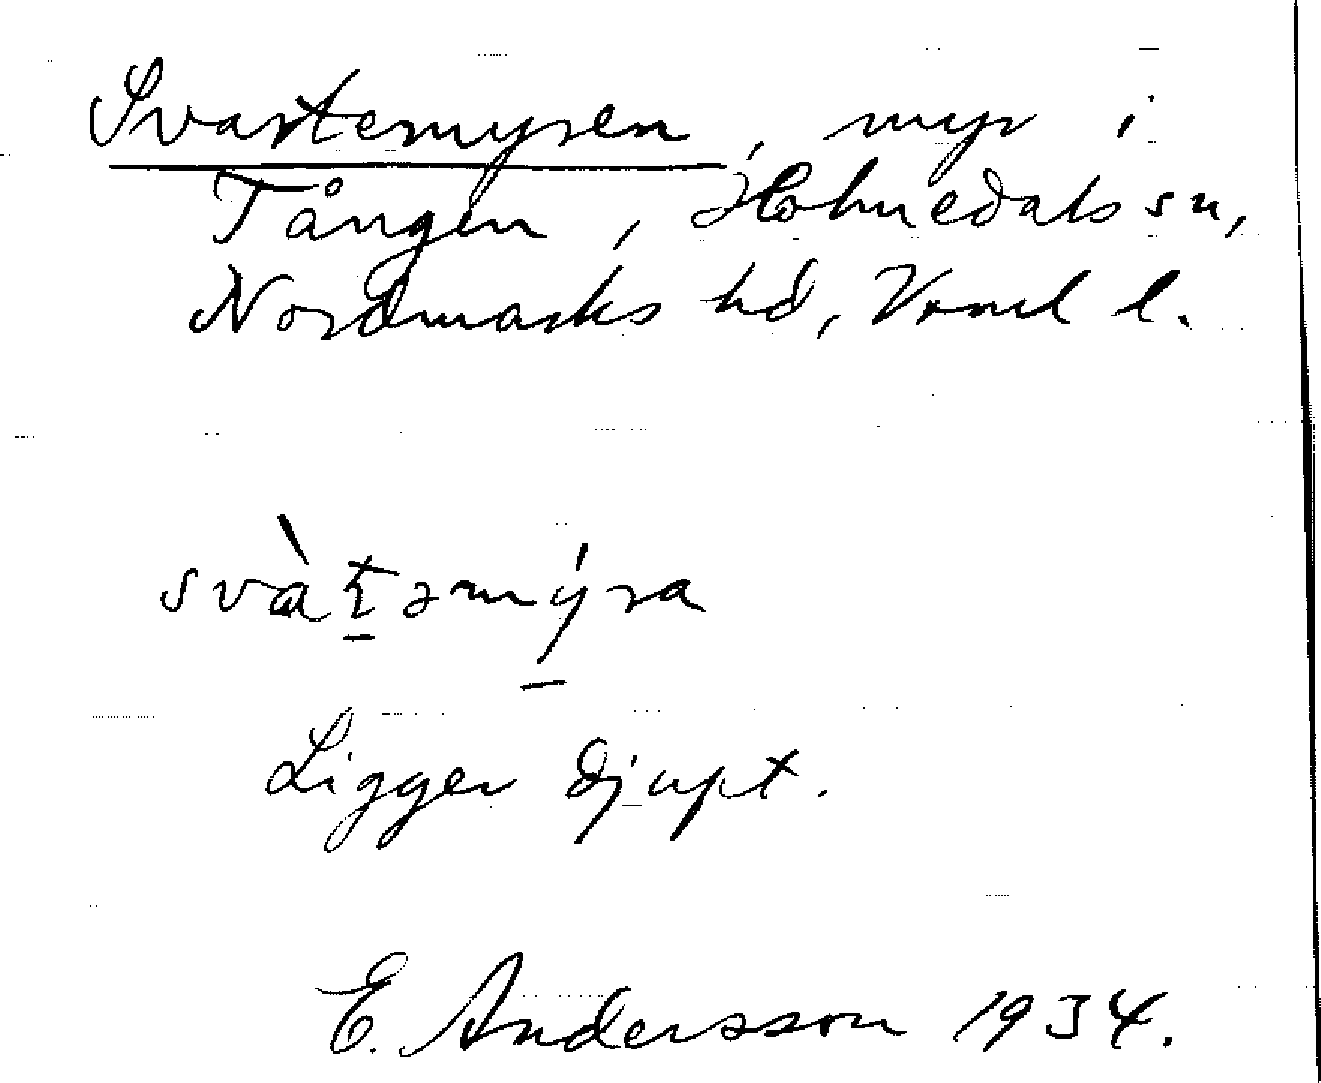 Svartemyren, myr i
Tången, Holmedals sn,
Nordmarks hd, Vrml l.
svàt̠əmýra
Ligger djupt.
E. Andersson 1934.